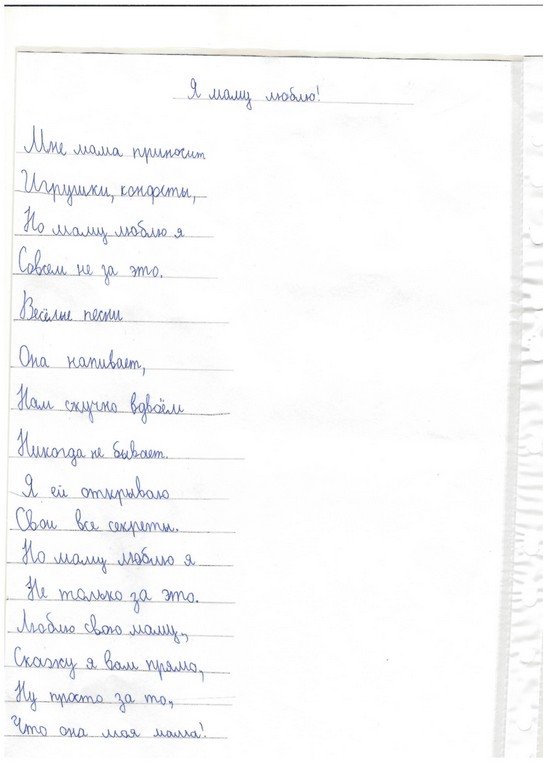 Я маму люблю!
Мне мама приносит
Игрушки, конфеты,
Но маму люблю я
Совсем не за это.
Весёлые песни
Она напивает,
Нам скучно вдвоём
Никогда не бывает.
Я ей открываю
Свои все секреты.
Но маму люблю я
Не только за это.
Люблю свою маму,
Скажу я вам прямо,
Ну просто за то,
Что она моя мама!